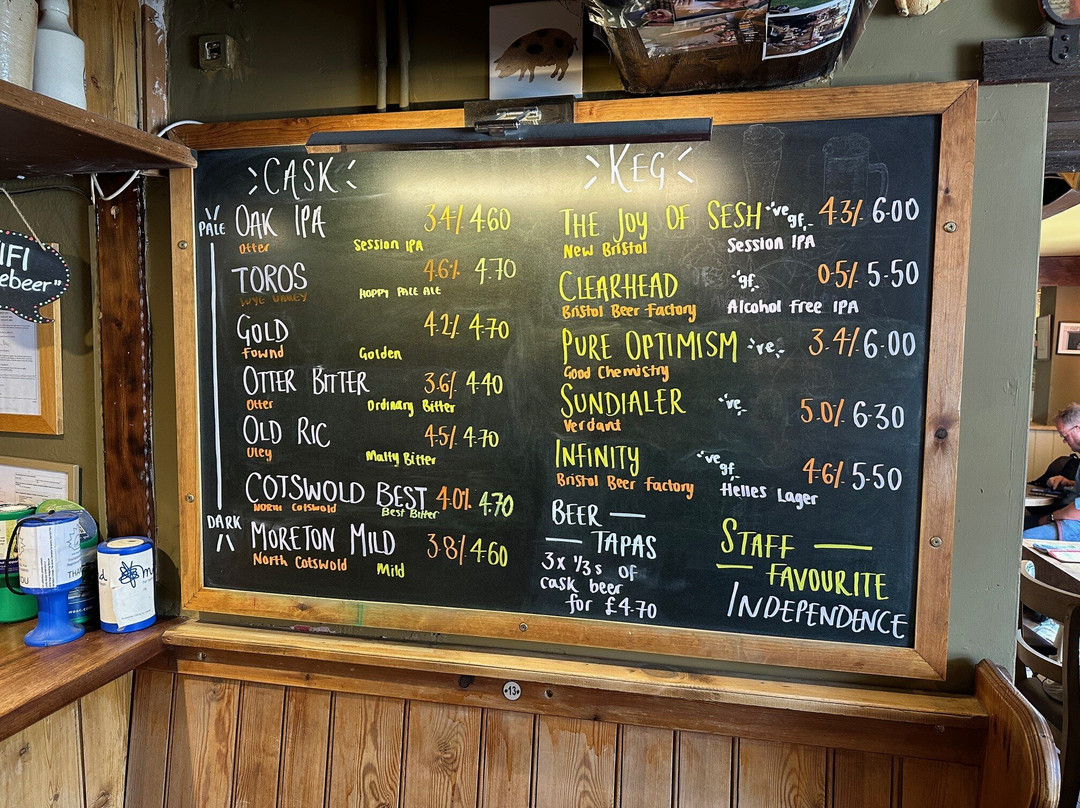 CASK
PALE
OAK IPA 3.4% 4.60
Otter Session IPA
TOROS 4.6% 4.70
WYE VALLEY HOPPY PALE ALE
GOLD 4.2% 4.70
Fownd Golden
OTTER BITTER 3.6% 4.40
Otter Ordinary Bitter
OLD RIC 4.5% 4.70
Uley Malty Bitter
COTSWOLD BEST 4.0% 4.70
North Cotswold Best Bitter
DARK
MORETON MILD 3.8% 4.60
North Cotswold Mild
KEG
THE JOY OF SESH ve gf 4.3% 6.00
New Bristol Session IPA
CLEARHEAD gf 0.5% 5.50
Bristol Beer Factory Alcohol free IPA
PURE OPTIMISM ve 3.4% 6.00
Good Chemistry
SUNDIALER ve 5.0% 6.30
Verdant
INFINITY ve gf 4.6% 5.50
Bristol Beer Factory Helles Lager
BEER
TAPAS
3x ⅓s of
cask beer
for £4.70
STAFF
FAVOURITE
INDEPENDENCE
13